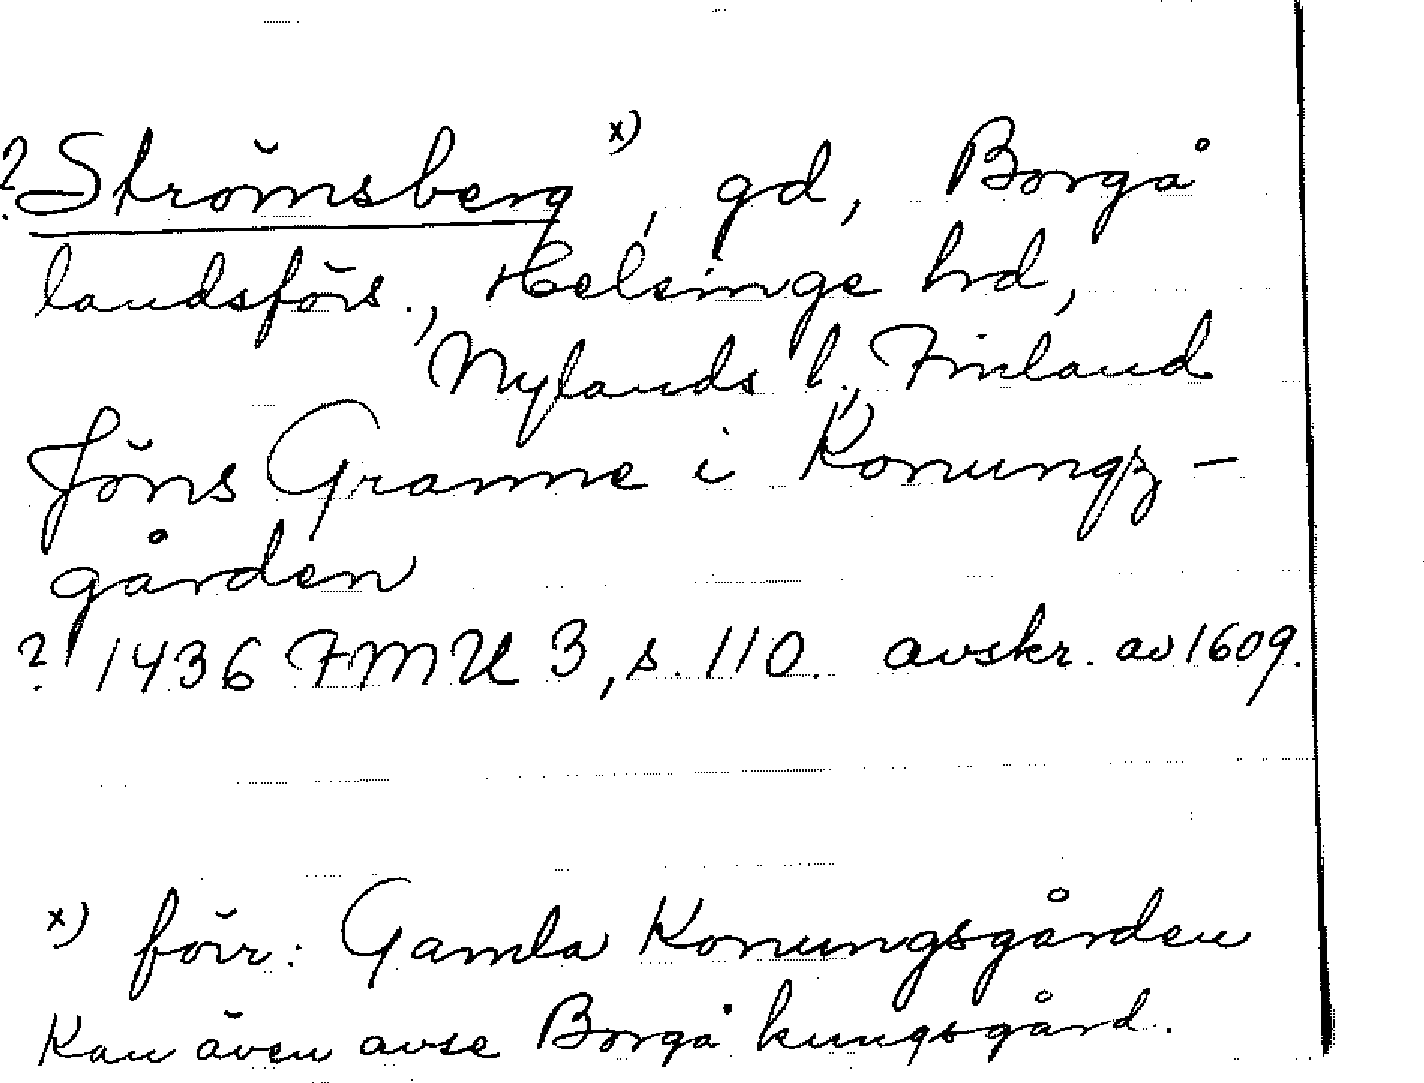 ?Strömsberg x), gd, Borgå
landsförs., Helsinge hrd,
Nylands l., Finland
Jöns Granne i Konungz-
gården
? 1436 FMU 3, s. 110. avskr. av 1609.
x) förr: Gamla Konungsgården
Kan även avse Borgå kungsgård.